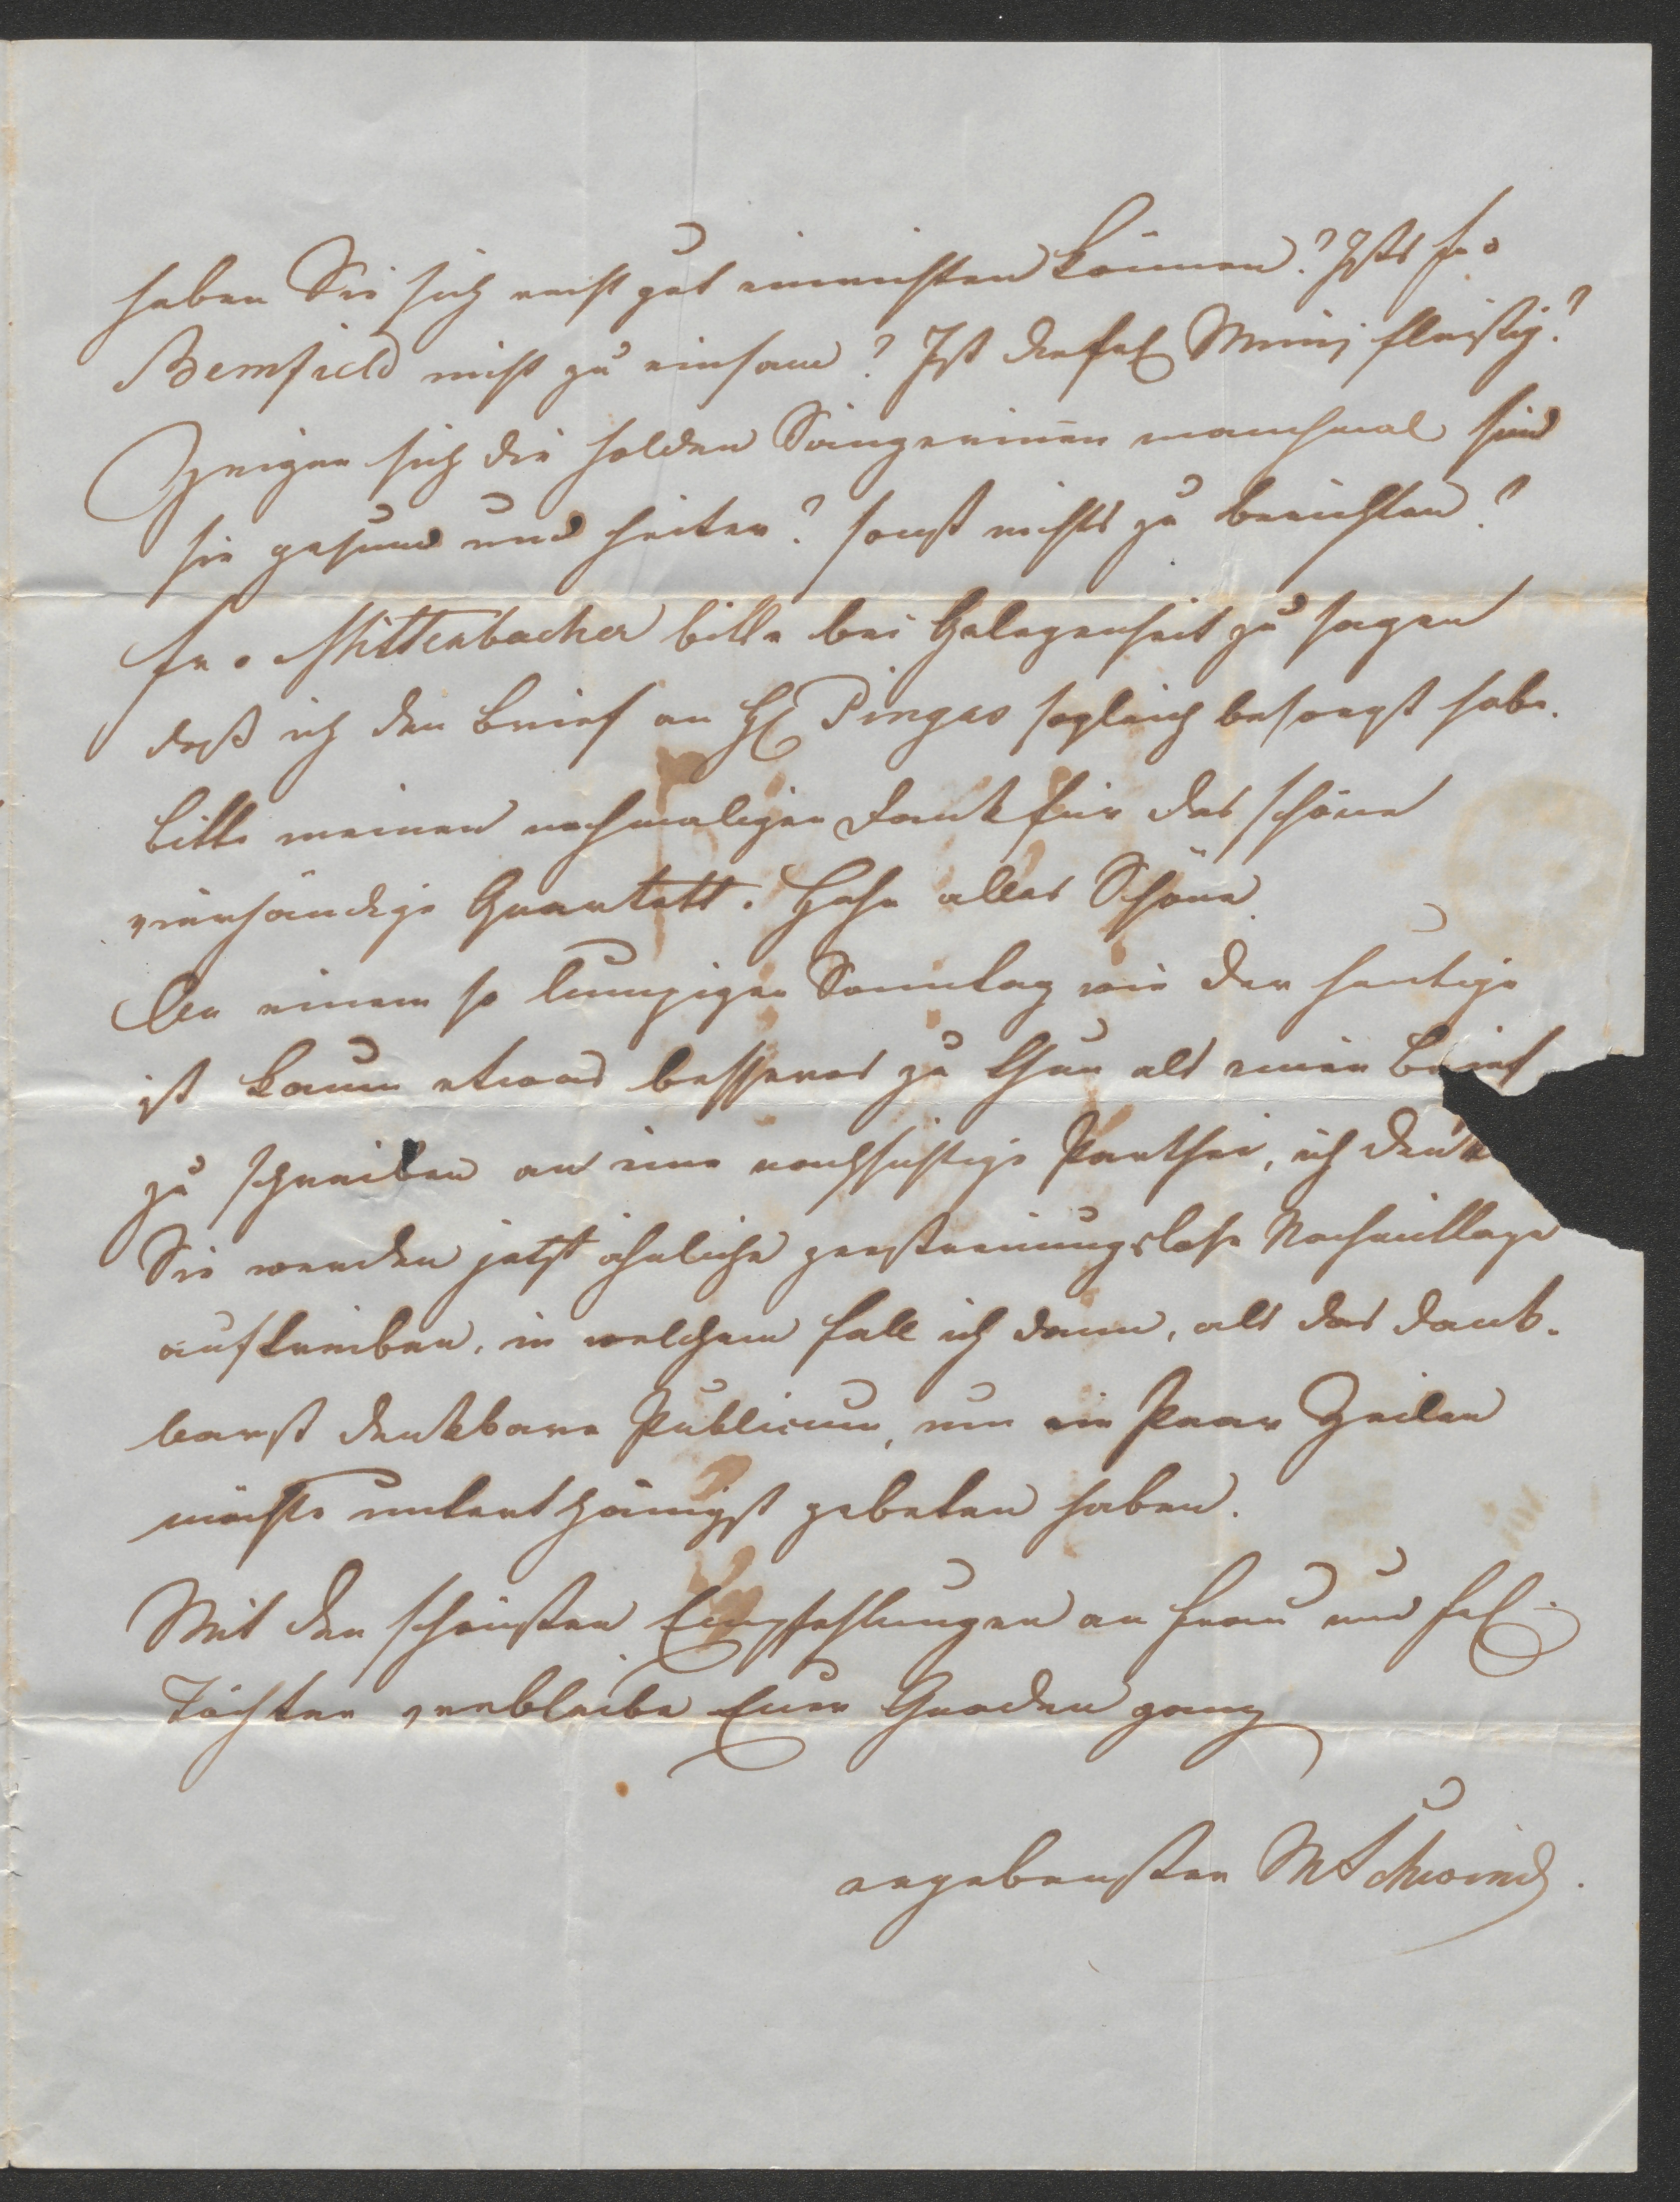 haben Sie sich recht gut einrichten können? Ists Fr.
Bernfield nicht zu einsam? Ist die Frl Mini fleißig?
Zeigen sich die holden Sängerinen manchmal sind
sie gesund und heiter? sonst nichts zu berichten?
Fr. Mittenbacher bitte bei Gelegenheit zu sagen
daß ich den Brief an H Pinzas sogleich besorgt habe.
bitte meinen nochmaligen Dank für das schöne
vierhändige Quartett. Hohe alles Schöne
An einem so lumpigen Sonntag wie der heutige
ist kaum etwas besseres zu thun als einen Brief
zu schreiben an eine nachsichtige Parthei, ich denk
Sie werden jetzt ähnliche zerstreuungslose Nachmittage
auftreiben, in welchem Fall ich dann, als das dank-
barst denkbare Publicum, um ein Paar Zeilen
möchte unterthänigst gebeten haben.
Mit den schönsten Empfehlungen an Frau und Frl.
Töchter verbleibe Euer Gnaden ganz
ergebenster MSchwind.